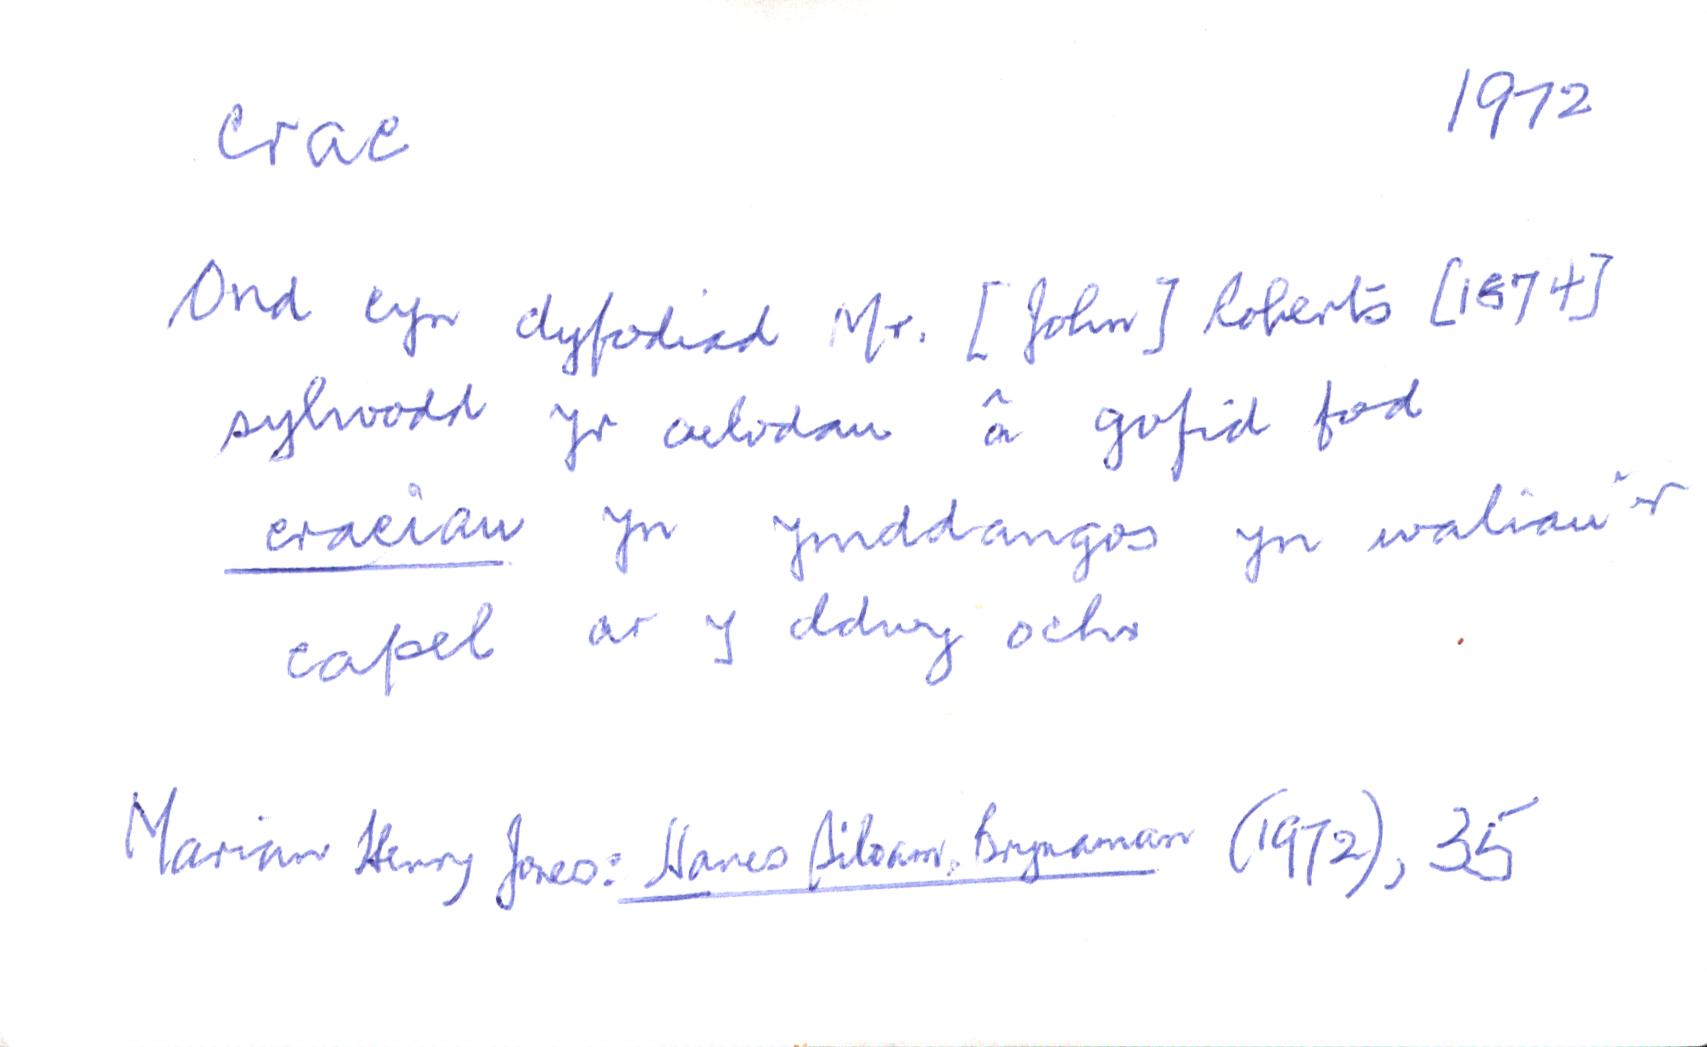 crac
1972
Ond cyn dyfodiad Mr. [John] Roberts [1874]
sylwodd yr aelodau â gofid fod
craciau yn ymddangos yn waliau'r
capel ar y ddwy ochr
Marian Henry Jones: Hanes Siloam, Brynaman (1972), 35